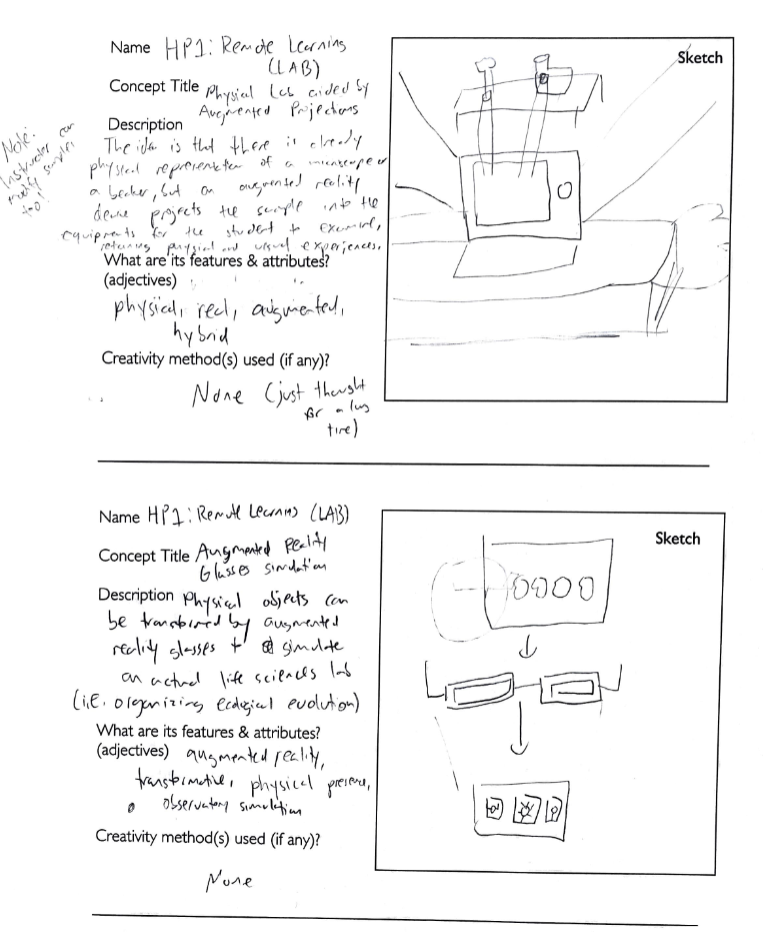 Name HP1: Remote Learning
(LAB)
Concept Title Physical Lab aided by
Augmented Projections
Description
The idea is that there is already
physical representation of a microscope or
a beaker, but an augmented reality
device projects the sample into the
equipments for the student to examine,
retaining physical and visual experiences.
Note:
Instructor can
modify samples
too!
What are its features & attributes?
(adjectives)
physical, real, augmented,
hybrid
Creativity method(s) used (if any)?
None (just thought
for a long
time)
Sketch
Name HP1: Remote Learning (LAB)
Concept Title Augmented Reality
Glasses simulation
Description Physical objects can
be transformed by augmented
reality glasses to simulate
an actual life sciences lab
(i.e. organizing ecological evolution)
What are its features & attributes?
(adjectives) augmented reality,
transformative, physical presence,
observatory simulation
Creativity method(s) used (if any)?
None
Sketch